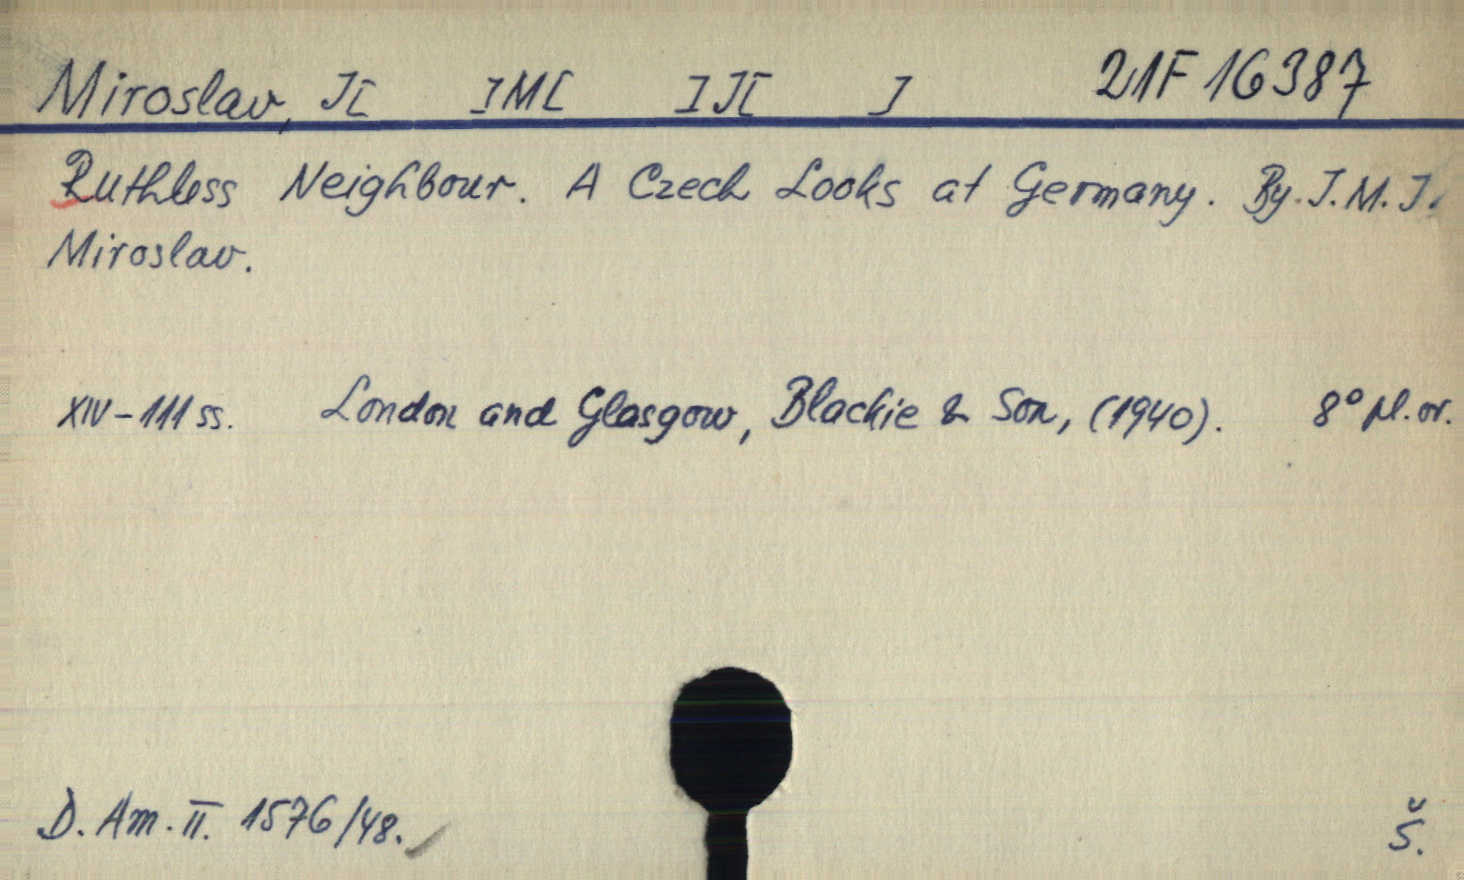 Miroslav, J[ ]M[ ]J[ ] 21F 16387
Ruthless Neighbour. A Czech Looks at Germany. By J. M. J.
Miroslav.
XIV-111 ss. London and Glasgow, Blackie & Son, (1940). 8° pl. or.
D. Am. II. 1576/48.
Š.